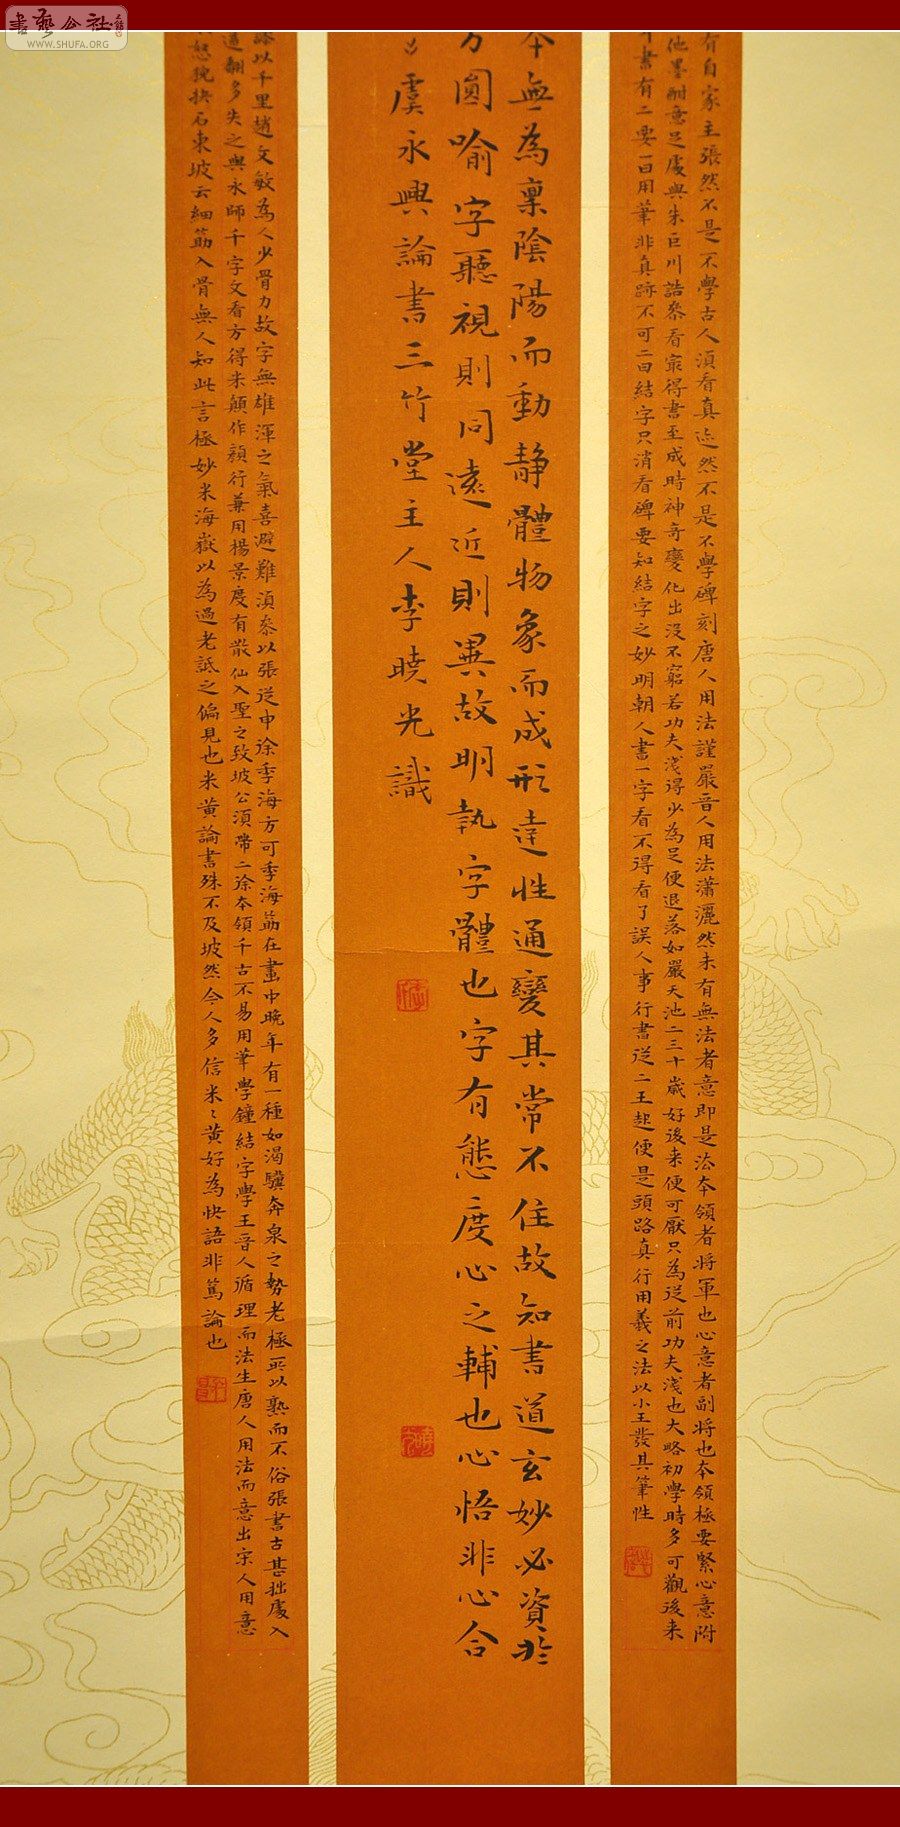 書藝公社
WWW.SHUFA.ORG
有自家主張然不是不學古人湏看真迹然不是不學碑刻唐人用法謹嚴晋人用法瀟灑然未有無法者意即是法夲領者將軍也心意者副將也夲領極要緊心意附
他墨酣意足處與朱巨川誥叅看寂得書至成時神奇變化出沒不窮若功夫淺得少為足便退落如嚴天池二三十歲好後来便可厭只為從前功夫淺也大略初學時多可觀後来
書有二要一曰用筆非真跡不可二曰結字只消看碑要知結字之妙明朝人書一字看不得看了誤人事行書從二王起便是頭路真行用義之法以小王發其筆性
夲無為稟陰陽而動静體物象而成形達性通變其常不住故知書道玄妙必資於
方圓喻字聽視則同遠近則異故明執字體也字有態度心之輔也心悟非心合
虞永興論書三竹堂主人李曉光識
以千里趙文敏為人少骨力故字無雄渾之氣喜避難湏叅以張從申徐季海方可季海筋在畫中晚年有一種如渴驥奔泉之勢老極所以熟而不俗張書古甚拙處入
翻多失之與永師千字文看方得米顛作顏行兼用楊景度有散仙入聖之致坡公湏帶二徐夲領千古不易用筆學鐘結字學王晋人循理而法生唐人用法而意出宋人用意
怒猊抉石東坡云細筋入骨無人知此言極妙米海嶽以為過老詆之偏見也米黄論書殊不及坡然今人多信米〻黄好為快語非篤論也